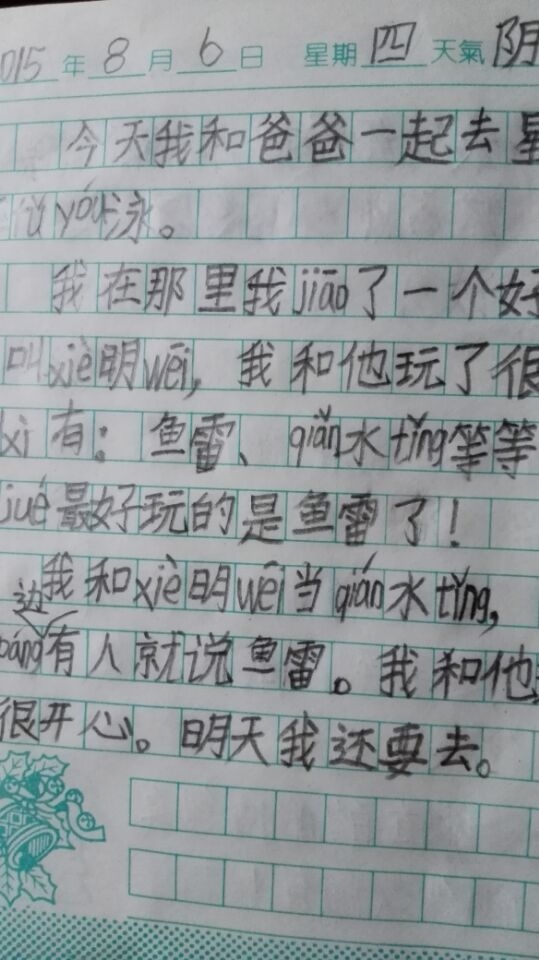 015年8月6日 星期四天氣阴
今天我和爸爸一起去星
yóu泳。
我在那里我jiāo了一个好
叫xiè明wēi，我和他玩了很
xì有：鱼雷、qiǎn水tǐng等等
jué最好玩的是鱼雷了！
我和xiè明wēi当qián水tǐng，
边
páng有人就说鱼雷。我和他
很开心。明天我还要去。